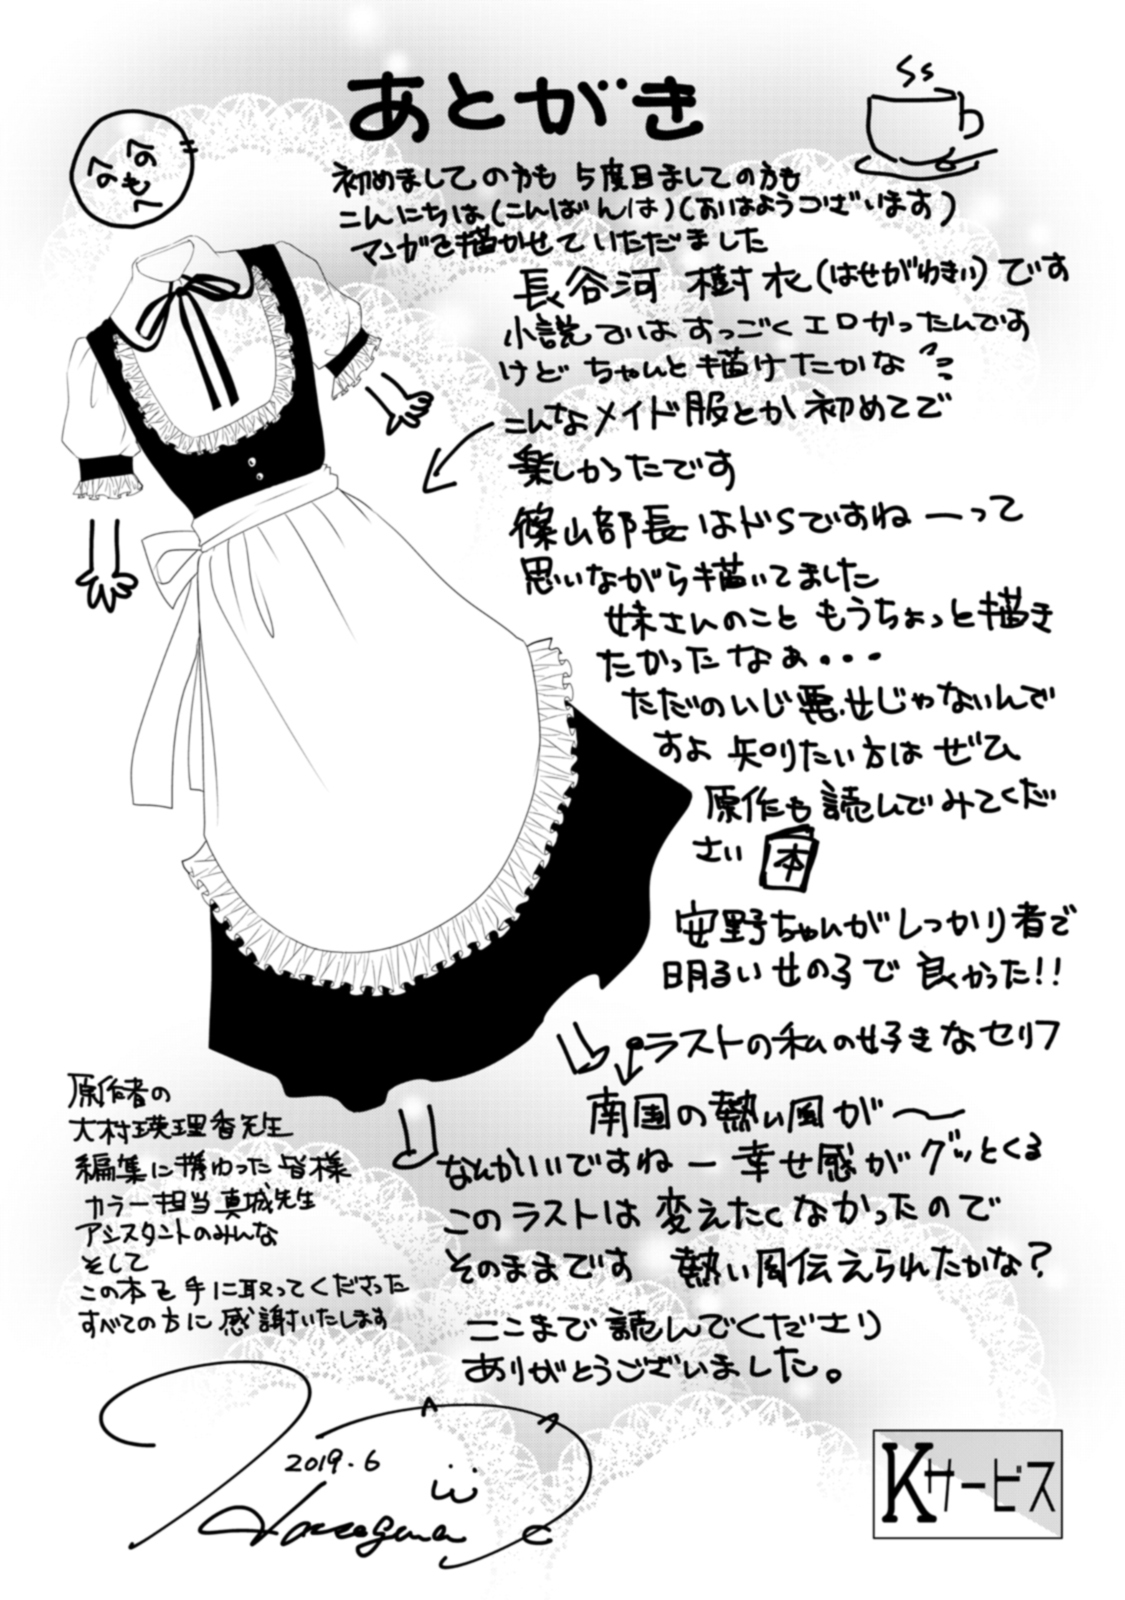 あとがき
初めましての方も 5度目ましての方も
こんにちは(こんばんは)(おはようございます)
マンガを描かせていただきました
長谷河 樹衣(はせがわきい)です
小説ではすっごくエロかったんです
けど ちゃんと描けたかな??
こんなメイド服とか初めてで
楽しかったです
篠山部長はドSですねーって
思いながら描いてました
妹さんのこともうちょっと描き
たかったなぁ・・・
ただのいじ悪せじゃないんで
すよ 知りたい方はぜひ
原作も読んでみてくだ
さい 本
安野ちゃんがしっかり者で
明るい女の子で良かった!!
ラストの私の好きなセリフ
南国の熱い風が〜
なんかいいですねー 幸せ感がグッとくる
このラストは変えたくなかったので
そのままです 熱い風伝えられたかな?
ここまで読んでくださり
ありがとうございました。
原作者の
大村瑛理香先生
編集に携わった皆様
カラー担当真城先生
アシスタントのみんな
そして
この本を手に取ってくださった
すべての方に感謝いたします
2019.6
Kサービス